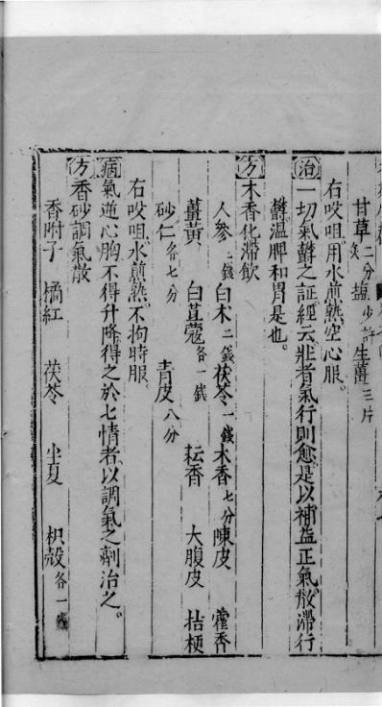 甘草二分炙 塩少許 生薑三片
右㕮咀用水煎熟空心服。
治一切氣欝之証經云壯者氣行則愈是以補益正氣散滯行
欝溫脾和胃是也。
方木香化滯飲
人參二錢 白木二錢 茯苓一錢 木香七分 陳皮 藿香
薑黃 白荳蔻各一錢 耘香 大腹皮 桔梗
砂仁各七分 青皮八分
右㕮咀水煎熟不拘時服
病氣逆心胸不得升降得之於七情者以調氣之劑治之。
方香砂調氣散
香附子 橘紅 茯苓 半夏 枳殼各一錢